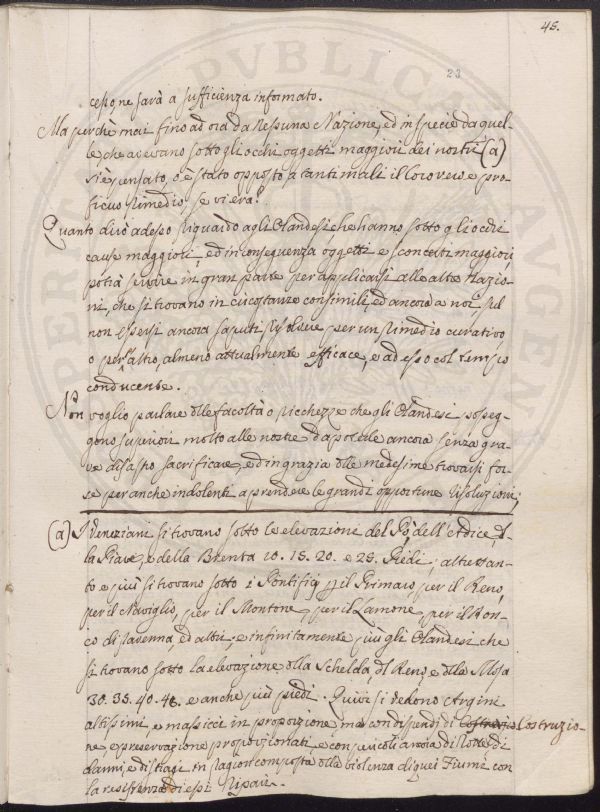 45.
23
cesi, ne sarà a sufficienza informato.
Ma perchè mai fino ad ora da Nessuna Nazione, ed in specie da quel-
le che avevano sotto gli occhi oggetti maggiori dei nostri (a)
si è pensato, o è stato opposto a tanti mali il loro vero e pro-
ficuo Rimedio, se vi era?
Quanto dirò adesso Riguardo agli Olandesi, che hanno sotto gli occhi
cause maggiori, ed in conseguenza oggetti e sconcerti maggiori,
potrà servire in gran parte per applicarsi alle altre Nazio-
ni, che si trovano in circostanze consimili, ed ancora a noi, sul
non essersi ancora saputi Risolvere per un Rimedio curativo
o per altro, almeno attualmente efficace, e ad esso col tempo
conducente.
Non voglio parlare delle facoltà o Ricchezze che gli Olandesi posseg-
gono superiori molto alle nostre da poterle ancora senza gra-
ve disastro sacrificare, ed in grazia delle medesime trovarsi for-
se per anche indolenti a prendere le grandi opportune Risoluzioni;
(a) I Veneziani si trovano sotto le elevazione del Pò, dell'Adice, del-
la Piave, e della Brenta 10. 15. 20. e 25. Piedi; altretan-
to e più si trovano sotto i Pontificj per il Primaro, per il Reno,
per il Naviglio, per il Montone, per il Lamone, per il Ron-
co di Ravenna, ed altri; e infinitamente più gli Olandesi che
si trovano sotto la elevazione della Schelda, del Reno, e della Mosa
30. 35. 40. 45. e anche più piedi. Quivi si vedono Argini
altissimi, e massicci in proporzione, ma con dispendi di Costruzio-
ne, e preservazione proporzionati, e con pericoli ancora di Rotte, di
danni, e di stragi in Ragion composta della violenza di quei Fiumi con
la resistenza di essi Ripari.